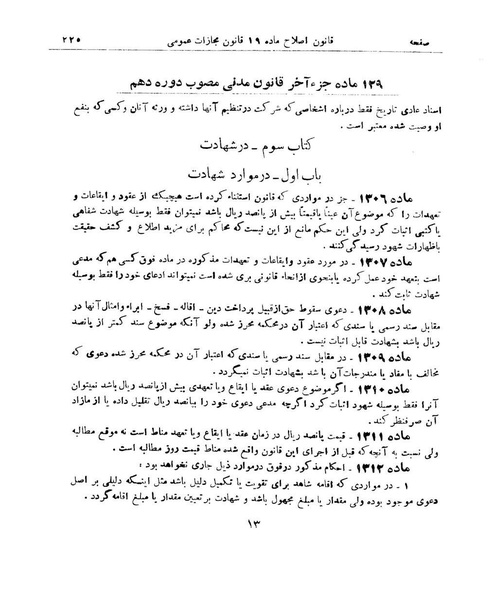 صفحه قانون اصلاح ماده ۱۹ قانون مجازات عمومی ۲۲۵
۱۲۹ ماده جزء آخر قانون مدنی مصوب دوره دهم
اسناد عادی تاریخ فقط درباره اشخاصی که شرکت درتنظیم آنها داشته و ورثه آنان وکسی که بنفع
او وصیت شده معتبر است .
کتاب سوم - درشهادت
باب اول - درموارد شهادت
ماده ۱۳۰۶ - جز در مواردی که قانون استثناء کرده است هیچیک از عقود و ایقاعات و
تعهدات را که موضوع آن عیناً یاقیمتاً بیش از پانصد ریال باشد نمیتوان فقط بوسیله شهادت شفاهی
یاکتبی اثبات کرد ولی این حکم مانع از این نیست که محاکم برای مزید اطلاع و کشف حقیقت
باظهارات شهود رسیدگی کنند.
ماده ۱۳۰۷ - در مورد عقود وایقاعات و تعهدات مذکوره در ماده فوق کسی هم که مدعی
است بتعهد خود عمل کرده یابنحوی ازانحاء قانونی بری شده است نمیتواند ادعای خود را فقط بوسیله
شهادت ثابت کند .
ماده ۱۳۰۸ - دعوی سقوط حق ازقبیل پرداخت دین - اقاله - فسخ - ابراء وامثال آنها در
مقابل سند رسمی یا سندی که اعتبار آن درمحکمه محرز شده ولو آنکه موضوع سند کمتر از پانصد
ریال باشد بشهادت قابل اثبات نیست .
ماده ۱۳۰۹ - در مقابل سند رسمی یا سندی که اعتبار آن در محکمه محرز شده دعوی که
مخالف با مفاد یا مندرجات آن باشد بشهادت اثبات نمیگردد .
ماده ۱۳۱۰ - اگرموضوع دعوی عقد یا ایقاع ویا تعهدی بیش ازپانصد ریال باشد نمیتوان
آنرا فقط بوسیله شهود اثبات کرد اگرچه مدعی دعوی خود را بپانصد ریال تقلیل داده یا از مازاد
آن صرفنظر کند .
ماده ۱۳۱۱ - قیمت پانصد ریال در زمان عقد یا ایقاع ویا تعهد مناط است نه موقع مطالبه
ولی نسبت به آنچه که قبل از اجرای این قانون واقع شده مناط قیمت روز مطالبه است .
ماده ۱۳۱۲ - احکام مذکور درفوق درموارد ذیل جاری نخواهد بود :
۱ - در مواردی که اقامه شاهد برای تقویت یا تکمیل دلیل باشد مثل اینکه دلیلی بر اصل
دعوی موجود بوده ولی مقدار یا مبلغ مجهول باشد و شهادت برتعیین مقدار یا مبلغ اقامه گردد .
۱۳